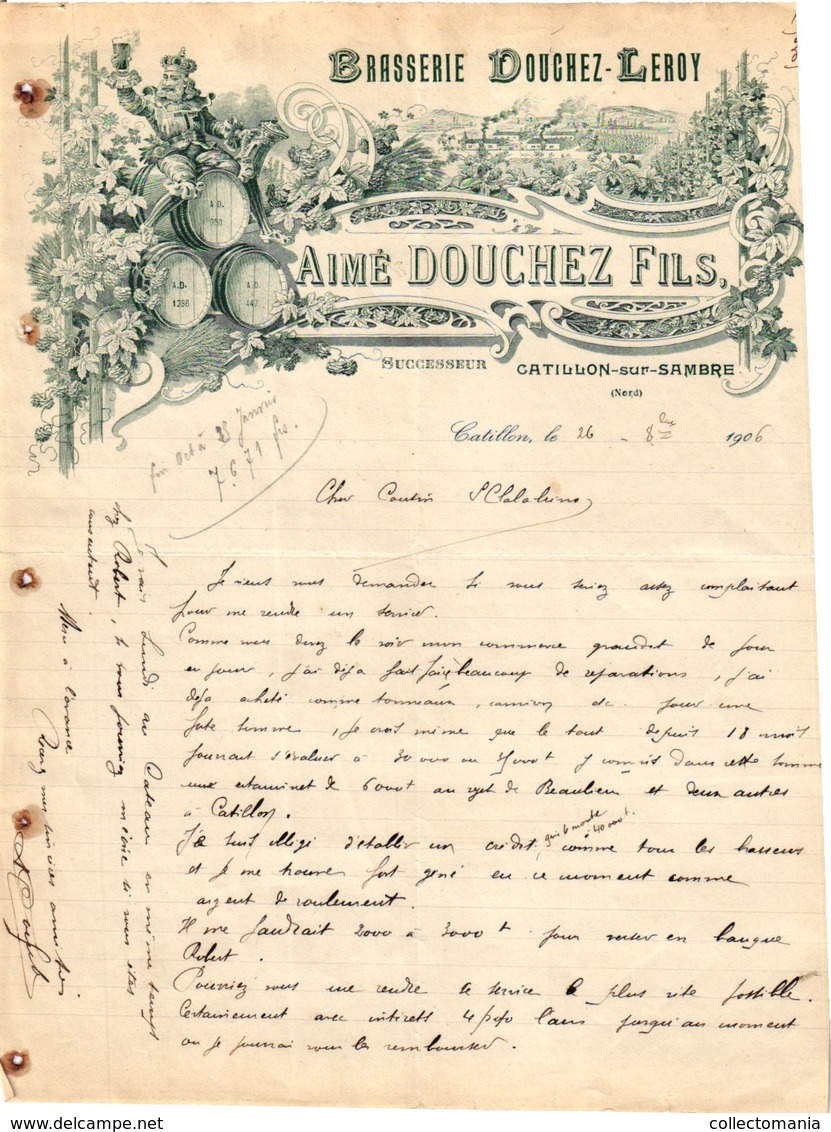 BRASSERIE DOUCHEZ-LEROY
A.D.
980
A.D.
1286
A.D.
447
AIMÉ DOUCHEZ FILS,
SUCCESSEUR CATILLON-sur-SAMBRE
(Nord)
Catillon, le 26 - 8bre 1906
fin Oct à 28 Janvier
7.671 frs.
Cher Cousin
Je viens vous demander si vous seriez assez complaisant
pour me rendre un service.
Comme vous devez le voir mon commerce grandit de jour
en jour, j'ai déjà fait faire beaucoup de réparations, j'ai
déjà acheté comme tonneaux, camion etc. pour une
forte somme, je crois même que le tout depuis 18 mois
pourrait s'évaluer à 30000 ou y compris dans cette somme
un estaminet de 6000f au de Beaulieu et deux autres
à Catillon.
Je suis obligé d'établir un crédit, qui se monte
à 40000f.
comme tous les brasseurs
et je me trouve fort gêné en ce moment comme
argent de roulement.
Il me faudrait 2000 à 3000f pour verser en banque
Robert.
Pourriez vous me rendre ce service le plus vite possible.
Certainement avec intérêts 4 p% l'an jusqu'au moment
ou je pourrai vous les rembourser.
Je vais Lundi au Cateau en même temps
chez Robert, le vous m'écrire si vous êtes
consentant.
Merci à l'avance
Recevez mes sincères amitiés
A Douchez
collectomania
Delcampe.net